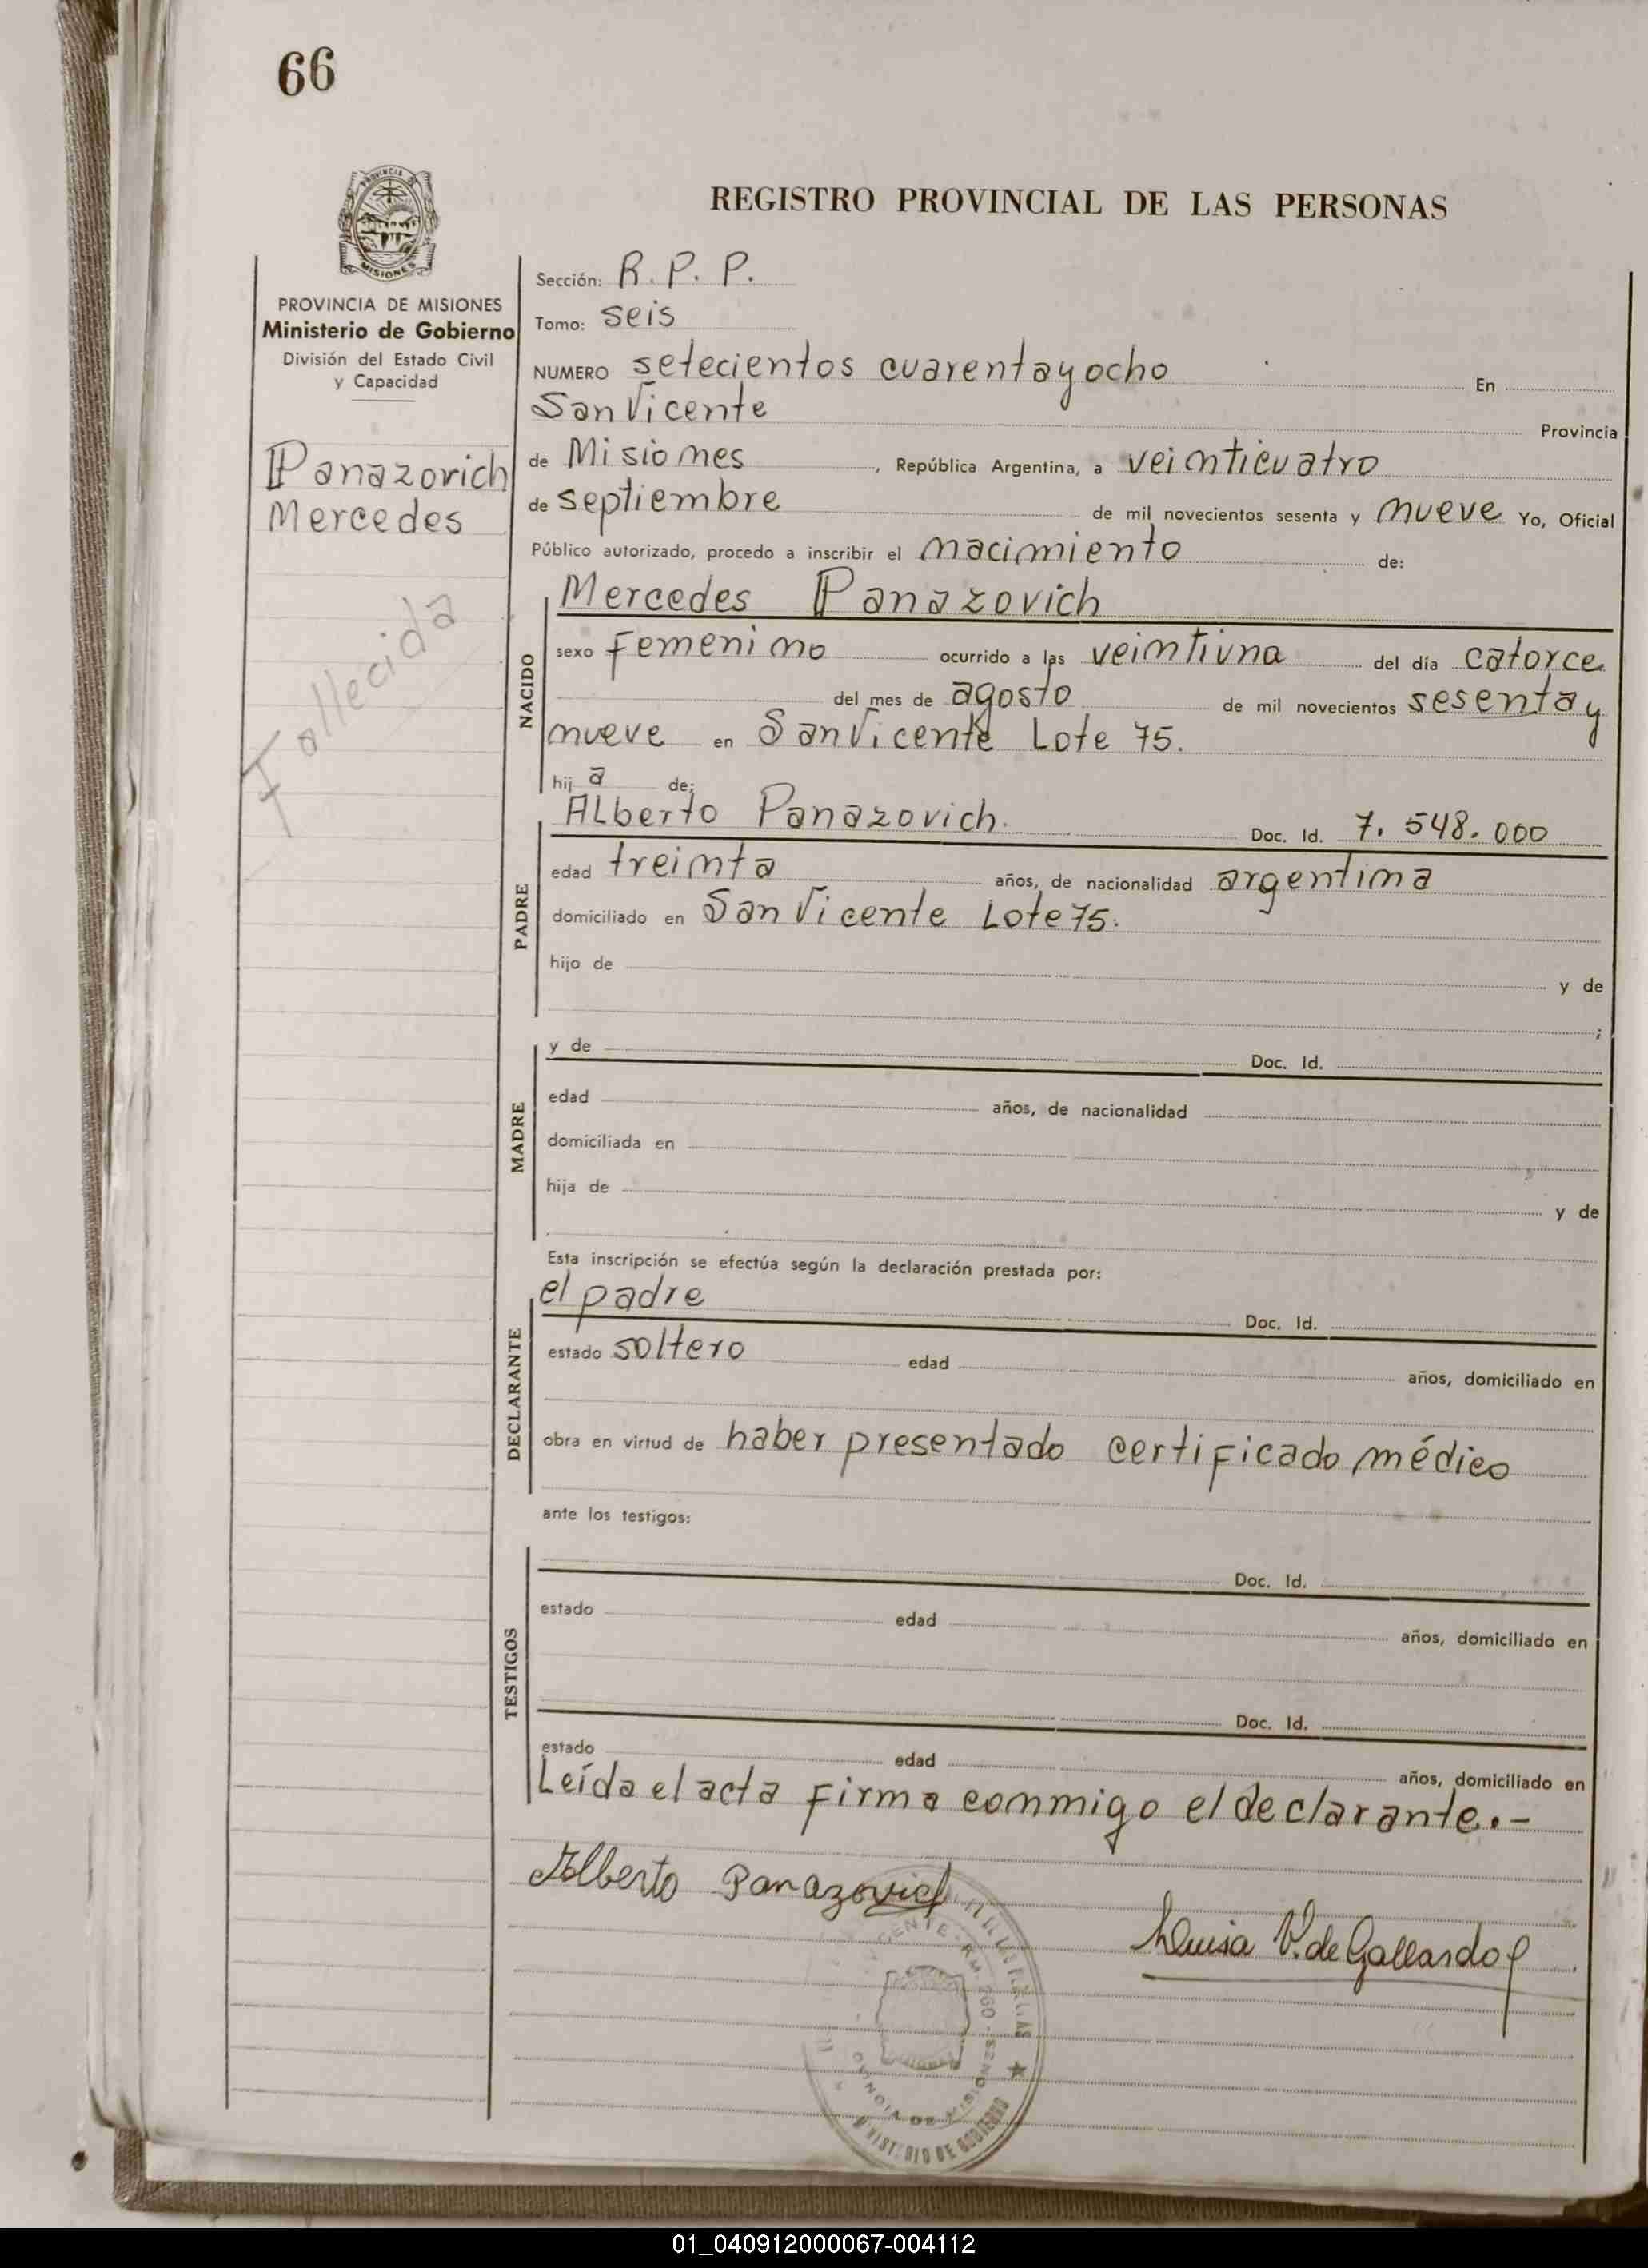 66
PROVINCIA DE
MISIONES
PROVINCIA DE MISIONES
Ministerio de Gobierno
División del Estado Civil
y Capacidad
Panazovich
Mercedes
Fallecida
REGISTRO PROVINCIAL DE LAS PERSONAS
Sección: R. P. P.
Tomo: seis
NUMERO setecientos cuarentayocho En
San Vicente Provincia
de Misiones, República Argentina, a veinticuatro
de septiembre de mil novecientos sesenta y nueve Yo, Oficial
Público autorizado, procedo a inscribir el nacimiento de:
NACIDO
Mercedes Panazovich
sexo Femenino ocurrido a las veintiuna del día catorce
del mes de agosto de mil novecientos sesenta y
nueve en San Vicente Lote 75.
hij a de:
PADRE
Alberto Panazovich. Doc. Id. 7.548.000
edad treinta años, de nacionalidad argentina
domiciliado en San Vicente Lote 75.
hijo de y de
;
MADRE
y de Doc. Id.
edad años, de nacionalidad
domiciliada en
hija de y de
Esta inscripción se efectúa según la declaración prestada por:
DECLARANTE
el padre Doc. Id.
estado soltero edad años, domiciliado en
obra en virtud de haber presentado certificado médico
ante los testigos:
TESTIGOS
Doc. Id.
estado edad años, domiciliado en
Doc. Id.
estado edad años, domiciliado en
Leída el acta firma conmigo el declarante.-
Alberto Panazovich
Luisa V. de Gallardo
CENTE - KM. 260 - MISIONES
DE MISIONES
MINISTERIO DE GOBIERNO
01_040912000067-004112